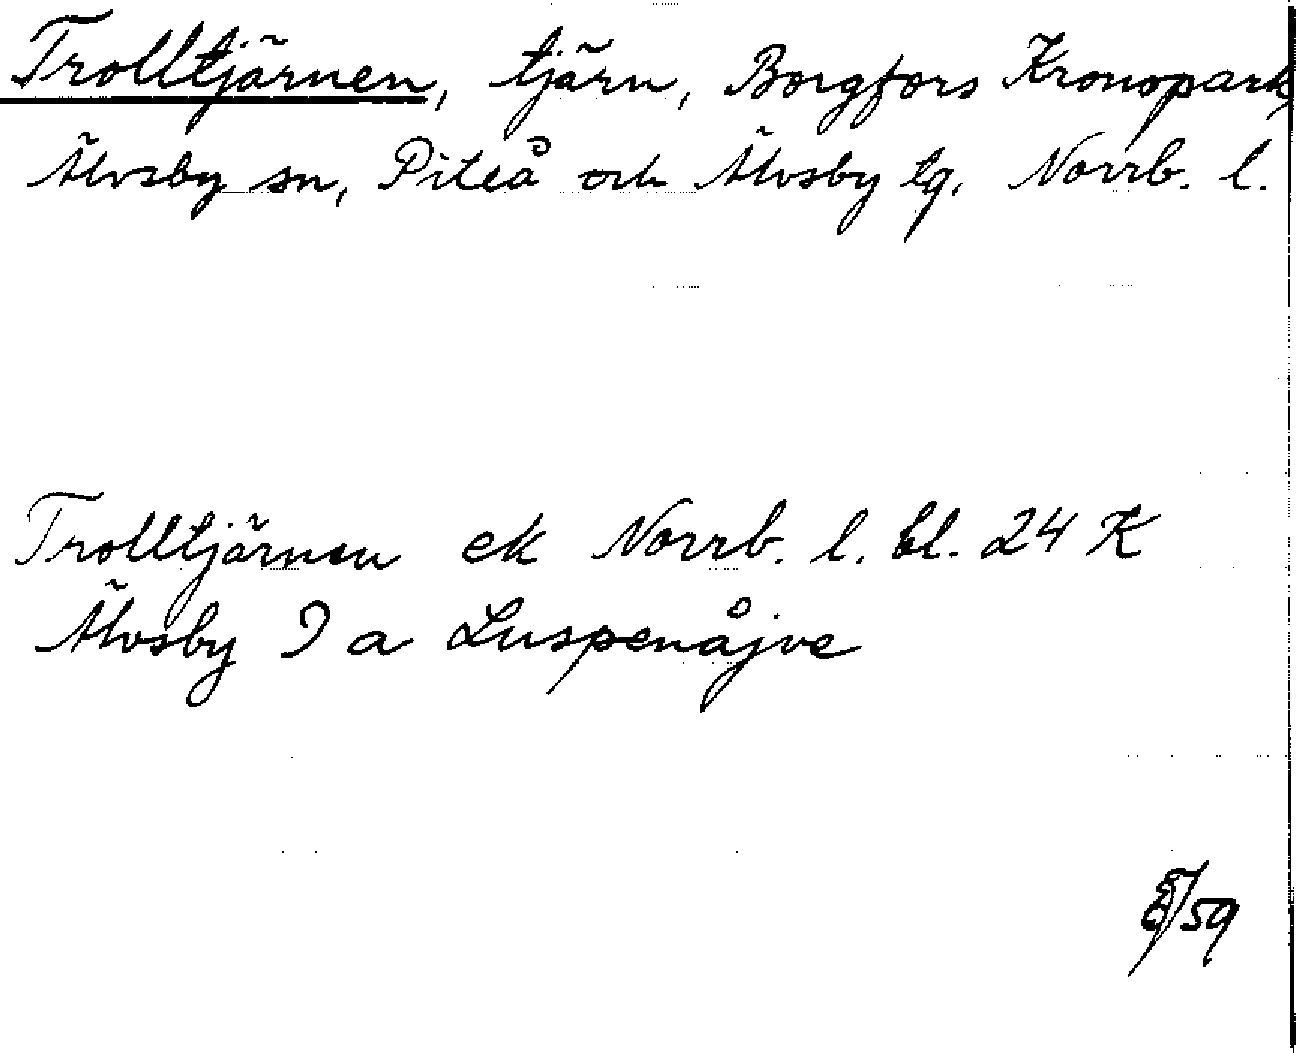 Trolltjärnen, tjärn, Borgfors Kronopark,
Älvsby sn, Piteå och Älvsby tg. Norrb. l.
Trolltjärnen ek Norrb. l. bl. 24 K
Älvsby 9 a Luspenåjve
/59